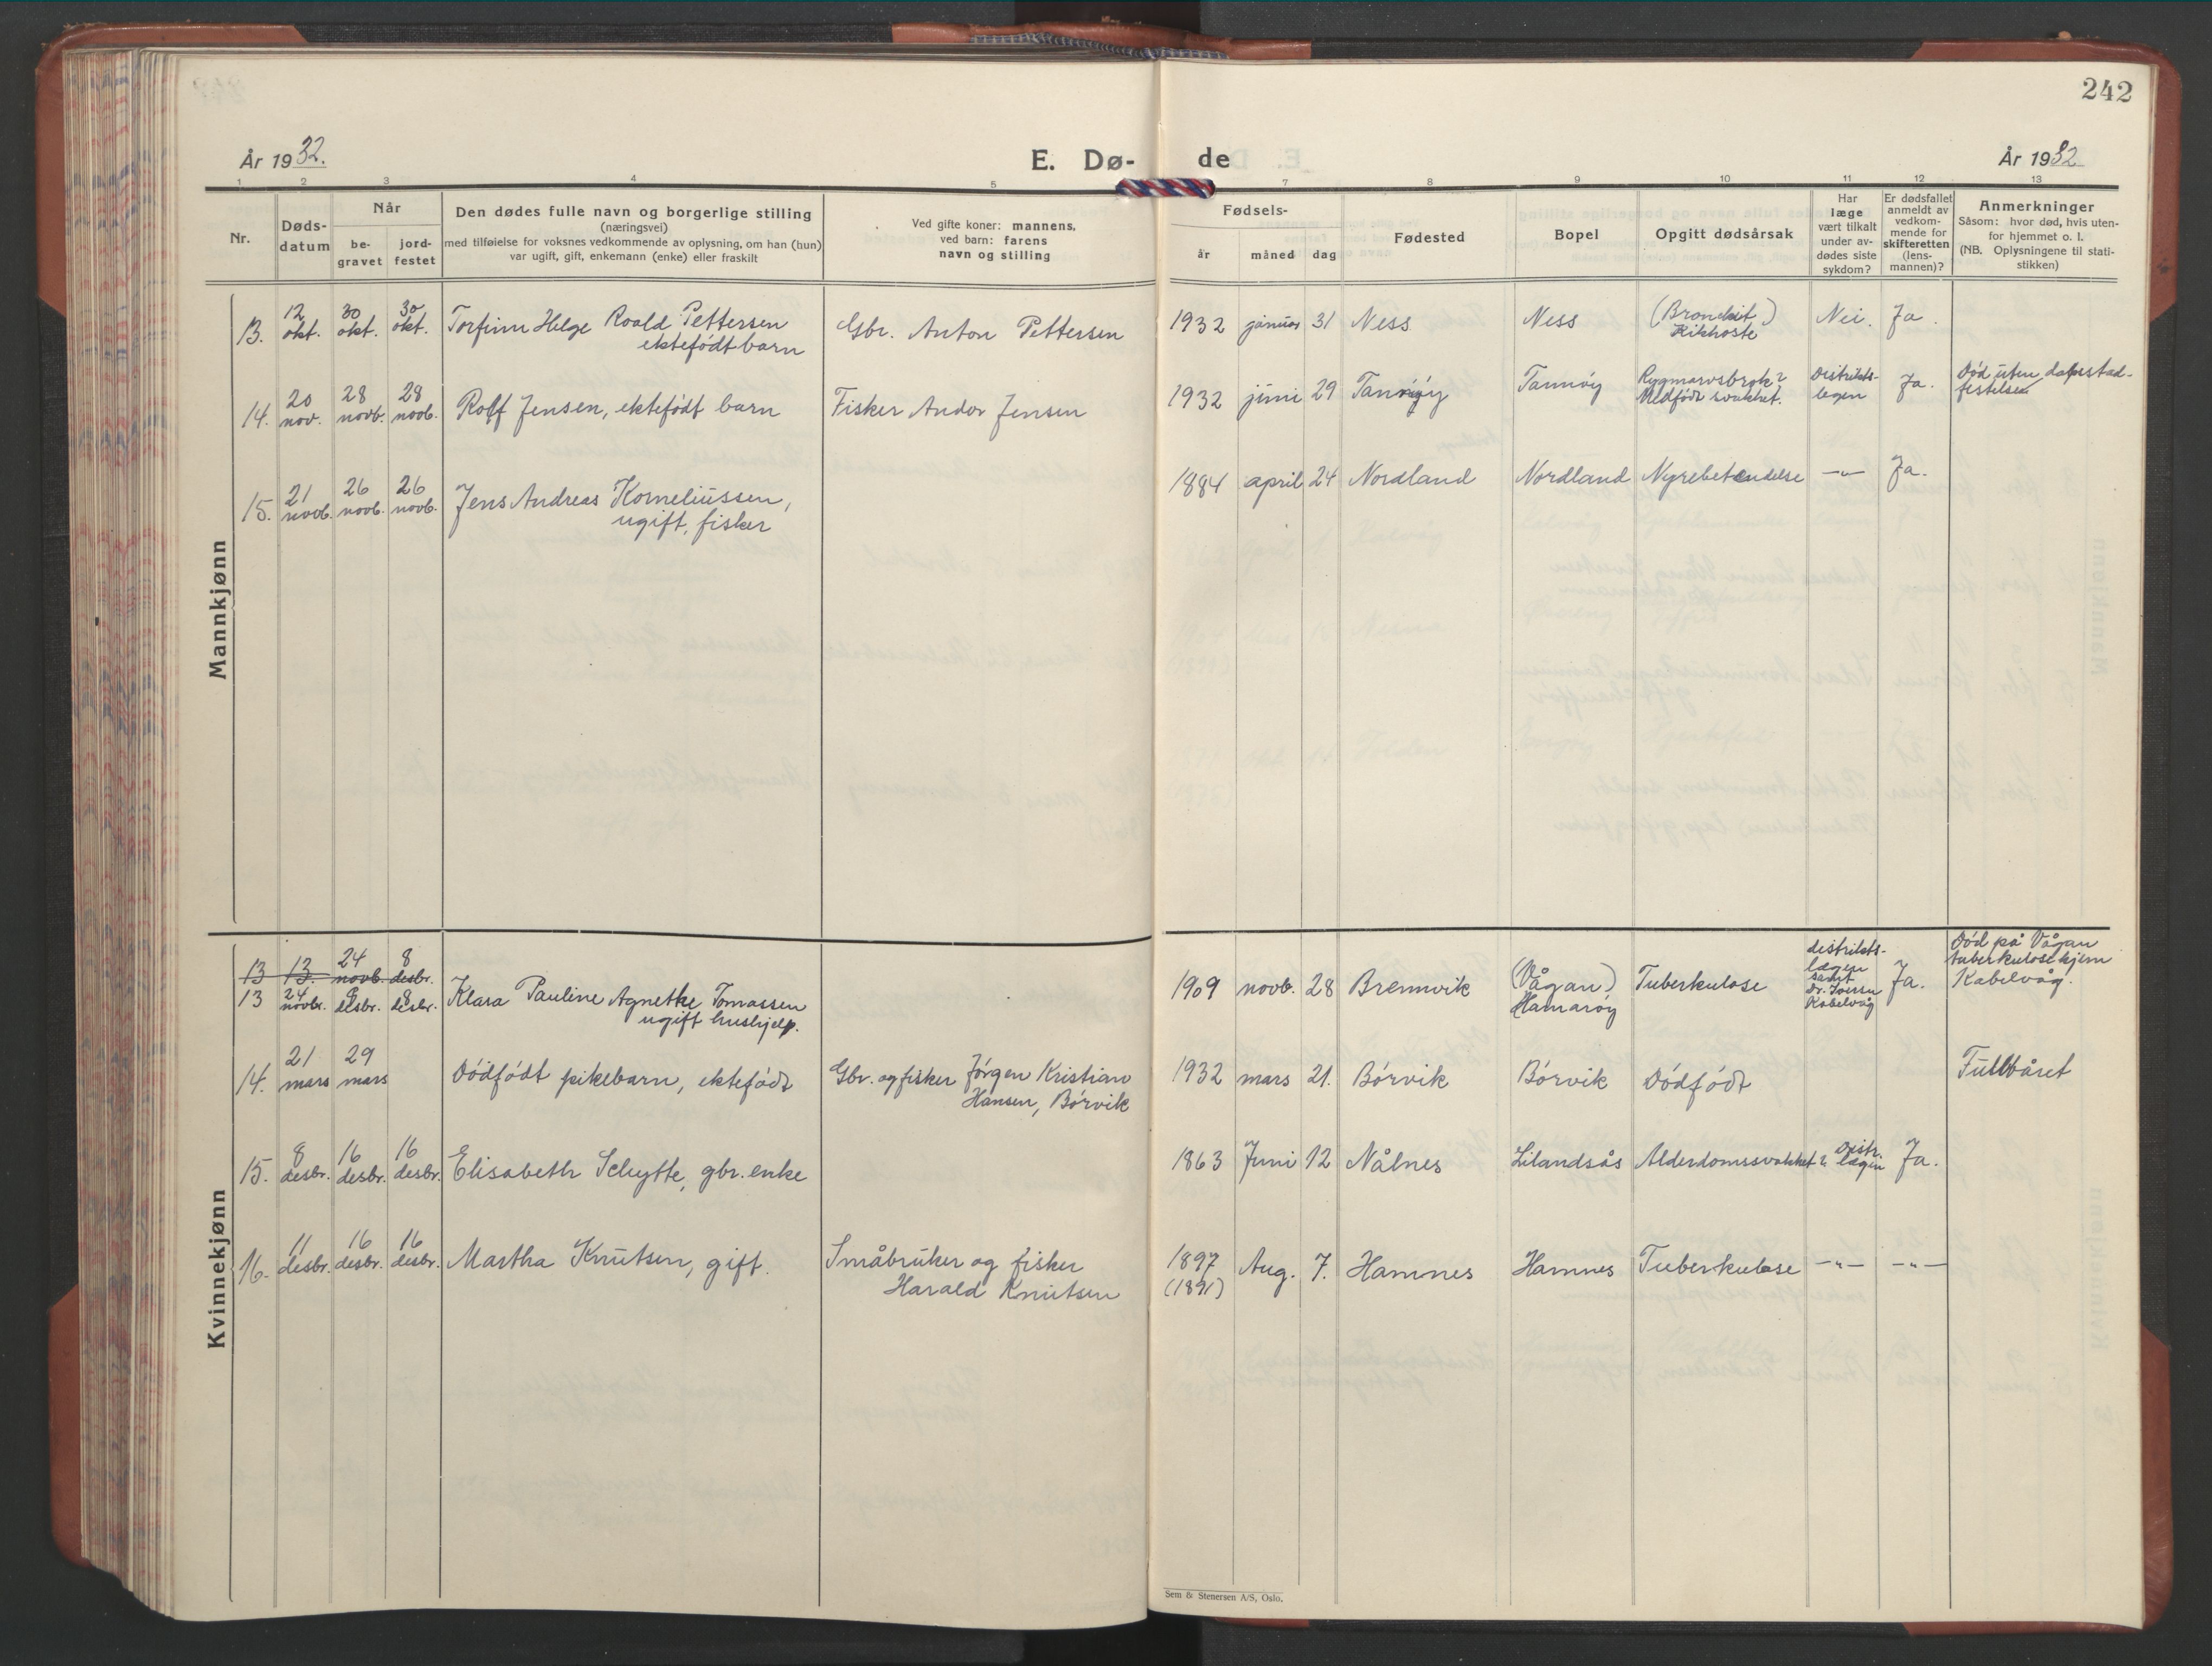 242
År 1932.
E. Dø-
de
År 1932
1 2 3 4 5 7 8 9 10 11 12 13
Nr.
Døds-
datum
Når
be-
gravet
jord-
festet
Den dødes fulle navn og borgerlige stilling
(næringsvei)
med tilføielse for voksnes vedkommende av oplysning, om han (hun)
var ugift, gift, enkemann (enke) eller fraskilt
Ved gifte koner: mannens,
ved barn: farens
navn og stilling
Fødsels-
år måned dag
Fødested
Bopel
Opgitt dødsårsak
Har
læge
vært tilkalt
under av-
dødes siste
sykdom?
Er dødsfallet
anmeldt av
vedkom-
mende for
skifteretten
(lens-
mannen)?
Anmerkninger
Såsom: hvor død, hvis uten-
for hjemmet o. l.
(NB. Oplysningene til stati-
stikken)
Mannkjønn
13. 12 okt. 30 okt. 30 okt. Torfinn Helge Roald Pettersen
ektefødt barn
Gbr. Anton Pettersen 1932 januar 31 Ness Ness (Bronchit)
Kikhoste
Nei. Ja.
14. 20 nov. 28 novb. 28 novb. Rolf Jensen, ektefødt barn Fisker Andor Jensen 1932 juni 29 Tannøy Tannøy Rygmarvsbrok?
Medfødt svakhet.
Distrikts-
legen
Ja. Død uten dåpsstad-
festelsen
15. 21 novb. 26 novb. 26 novb. Jens Andreas Korneliussen,
ugift, fisker
1884 april 24 Nordland Nordland Nyrebetendelse -"- Ja.
Kvinnekjønn
13 13. 24 novb. 8 desbr.
13 24 novbr. 8 desbr. 8 desbr. Klara Pauline Agnethe Tomassen
ugift hushjelp.
1909 novb. 28 Brennvik (Vågan)
Hamarøy
Tuberkulose
distrikts-
lægen
samt
Dr.
Kabelvåg
Ja.
Død på Vågan
tuberkulosehjem
Kabelvåg.
14. 21 mars 29 mars Dødfødt pikebarn, ektefødt Gbr. og fisker Jørgen Kristian
Hansen, Børvik
1932 mars 21. Børvik Børvik Dødfødt Fullbåret
15. 8 desbr. 16 desbr. 16 desbr. Elisabeth Schytte, gbr. enke 1863 Juni 12 Nålnes Lilandsås Alderdomssvakhet? Distr.
lægen
Ja.
16. 11 desbr. 16 desbr. 16 desbr. Martha Knutsen, gift. Småbruker og fisker
Harald Knutsen
1897
(1891)
Aug. 7. Hamnes Hamnes Tuberkulose -"- -"-
Sem & Stenersen A/S, Oslo.